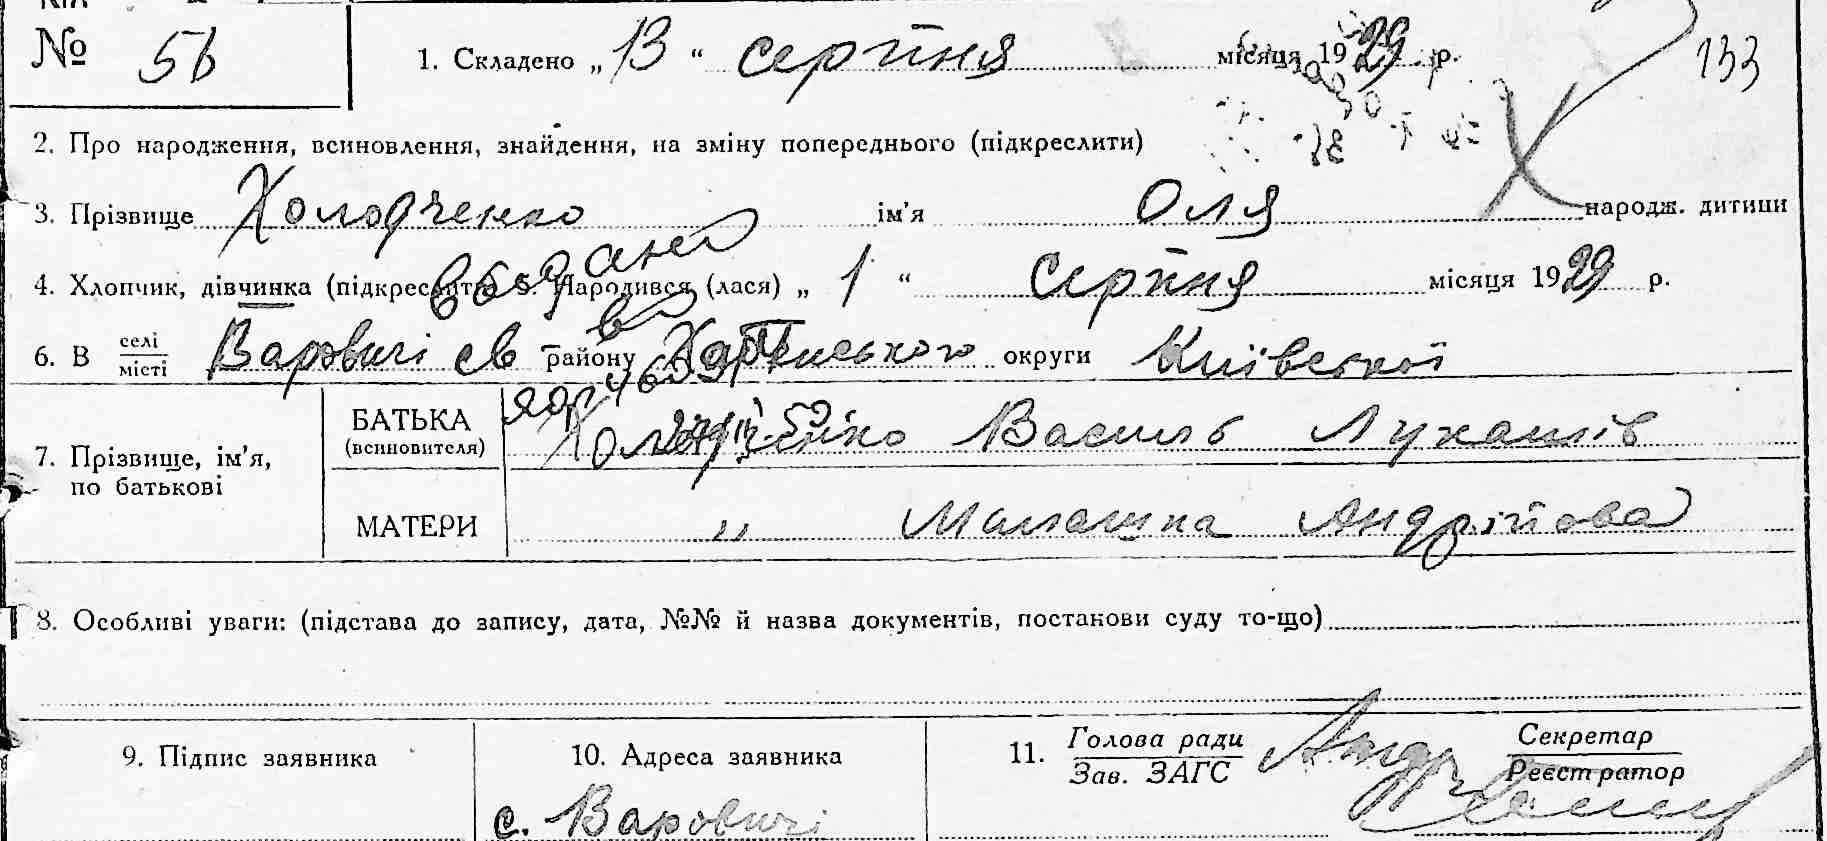 № 56 1. Складено „13“ серпня місяця 1929 р. 133
2. Про народження, всиновлення, знайдення, на зміну попереднього (підкреслити)
3. Прізвище Холодченко ім'я Оля народж. дитини
4. Хлопчик, дівчинка (підкреслити) 5. Народився (лася) „1“ серпня місяця 1929 р.
6. В селі/місті Варовичі району Хабенського округи Київської
7. Прізвище, ім'я, по батькові
БАТЬКА (всиновителя) Холодченко Василь Лукашів
МАТЕРИ „ Малашка Андрійова
8. Особливі уваги: (підстава до запису, дата, №№ й назва документів, постанови суду то-що)
9. Підпис заявника 10. Адреса заявника 11. Голова ради/Зав. ЗАГС Секретар/Реєстратор
с. Варовичі